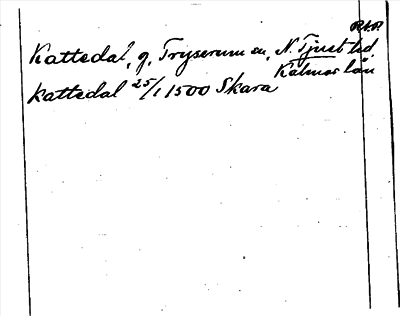 R.A.P.
Kattedal, g. Tryserum sn, N. Tjust hd
Kalmar län
Kattedal 25/1 1500 Skara